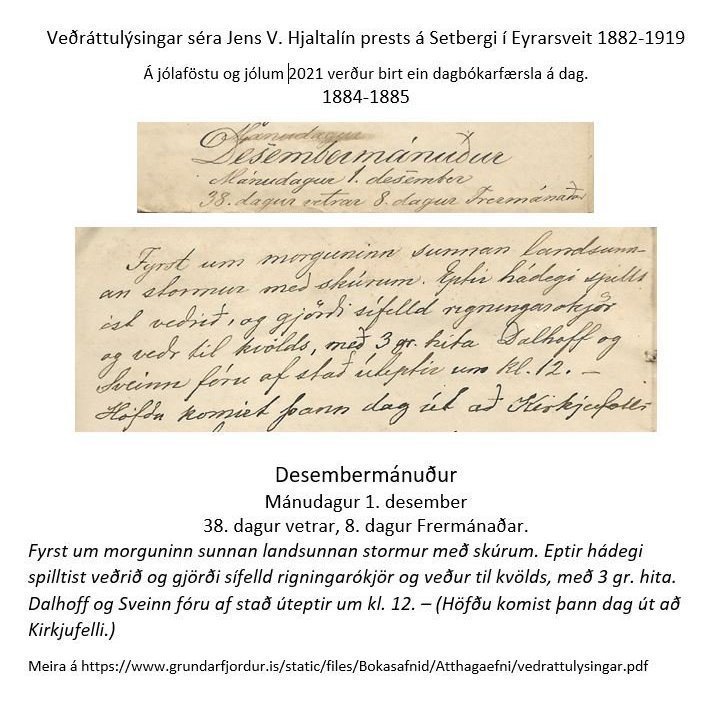 Veðráttulýsingar séra Jens V. Hjaltalín prests á Setbergi í Eyrarsveit 1882-1919
Á jólaföstu og jólum 2021 verður birt ein dagbókarfærsla á dag.
1884-1885
Mánudagur
Desembermánuður
Mánudagur 1. desember
38. dagur vetrar 8. dagur Frermánaðar
Fyrst um morguninn sunnan landsunn-
an stormur með skúrum. Eptir hádegi spillt
ist veðrið, og gjörði sífelld rigningarókjör
og veðr til kvölds, með 3 gr. hita Dalhoff og
Sveinn fóru af stað úteptir um kl. 12. –
Höfðu komist þann dag út að Kirkjufelli
Desembermánuður
Mánudagur 1. desember
38. dagur vetrar, 8. dagur Frermánaðar.
Fyrst um morguninn sunnan landsunnan stormur með skúrum. Eptir hádegi
spilltist veðrið og gjörði sífelld rigningarókjör og veður til kvölds, með 3 gr. hita.
Dalhoff og Sveinn fóru af stað úteptir um kl. 12. – (Höfðu komist þann dag út að
Kirkjufelli.)
Meira á https://www.grundarfjordur.is/static/files/Bokasafnid/Atthagaefni/vedrattulysingar.pdf